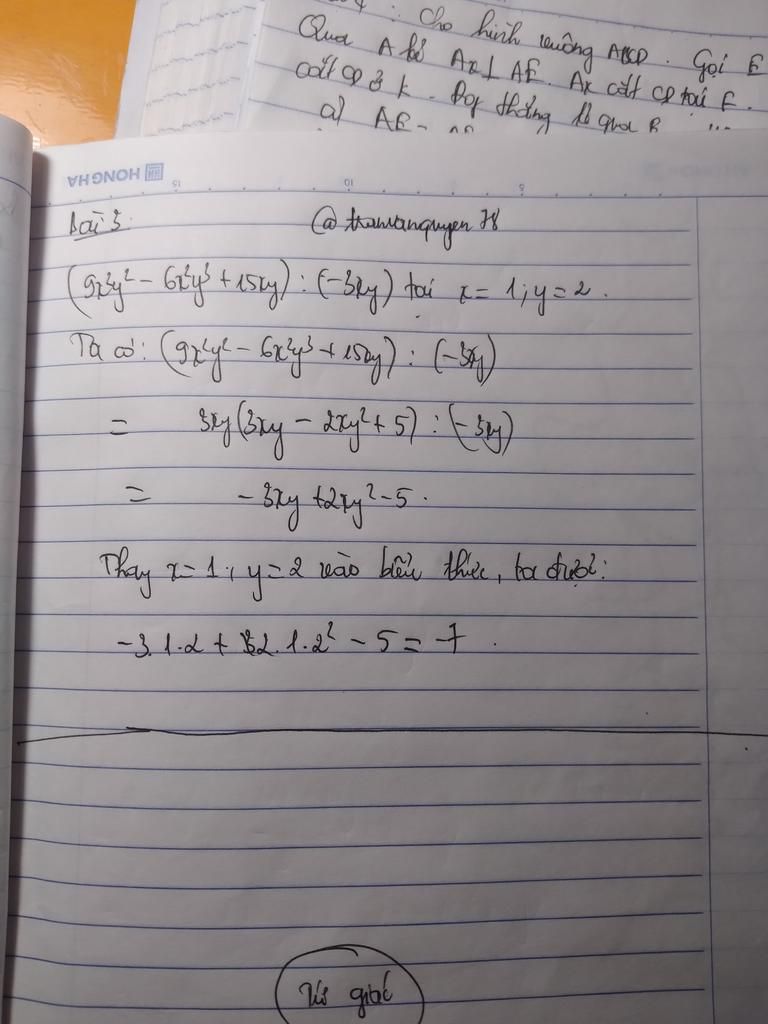 : Cho hình vuông ABCD. Gọi E
Qua A kẻ Ax ⊥ AE. Ax cắt CD tại F.
cắt CD ở K. Đg thẳng
a) AE =
HONG HA
15 10 5
Bài 3
(9x²y² - 6x²y³ + 15xy) : (-3xy) tại x = 1; y = 2.
Ta có: (9x²y² - 6x²y³ + 15xy) : (-3xy)
= 3xy(3xy - 2xy² + 5) : (-3xy)
= -3xy + 2xy² - 5.
Thay x = 1; y = 2 vào biểu thức, ta được:
-3.1.2 + 2.1.2² - 5 = -7.